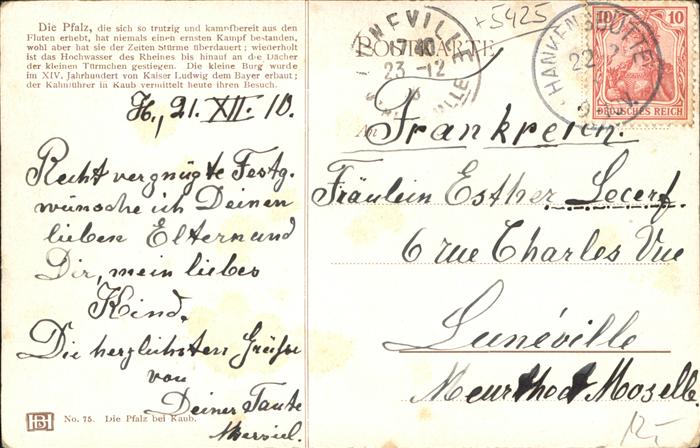 Die Pfalz, die sich so trutzig und kampfbereit aus den
Fluten erhebt, hat niemals einen ernsten Kampf bestanden,
wohl aber hat sie der Zeiten Stürme überdauert; wiederholt
ist das Hochwasser des Rheines bis hinauf an die Dächer
der kleinen Türmchen gestiegen. Die kleine Burg wurde
im XIV. Jahrhundert von Kaiser Ludwig dem Bayer erbaut;
der Kahnführer in Kaub vermittelt heute ihren Besuch.
H., 21. XII. 10.
Recht vergnügte Festg.
wünsche ich Deinen
lieben Eltern und
Dir, mein liebes
Kind.
Die herzlichsten Grüße
von
Deiner Tante
HB
No. 75. Die Pfalz bei Kaub.
+5425
POSTKARTE
NEVILLE
17 40
23 -12
HANKENSBÜTTEL
22
10 10
DEUTSCHES REICH
An
Frankreich.
Fräulein Esther Lecerf.
6 rue Charles Vue
Lunéville
Meurthe et Moselle.
12-